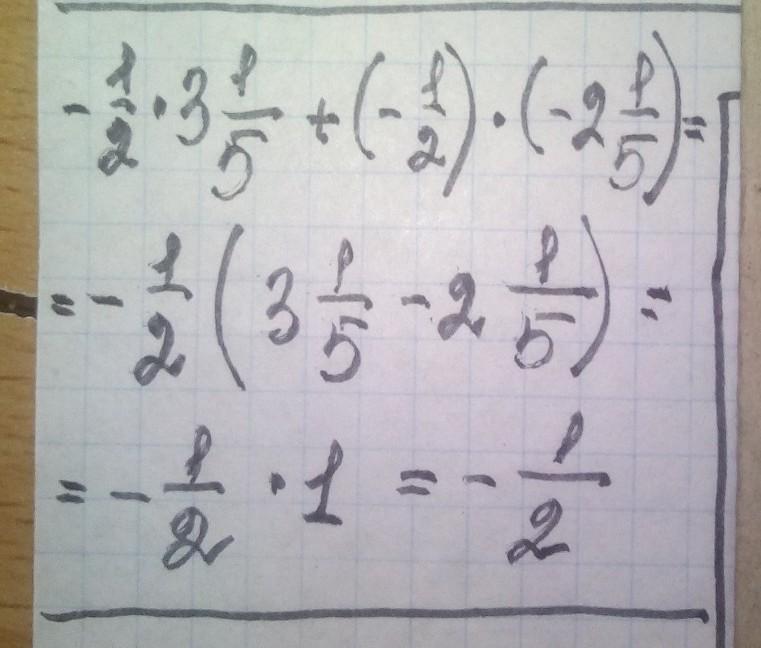 -1/2 · 3 1/5 + (-1/2) · (-2 1/5) =
= -1/2 (3 1/5 - 2 1/5) =
= -1/2 · 1 = -1/2